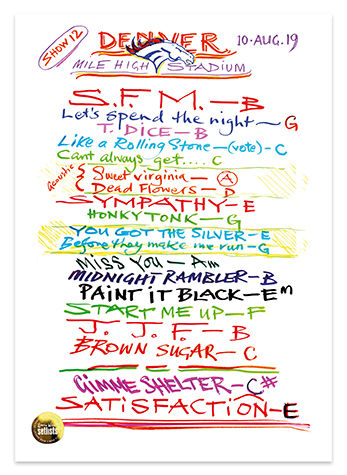 SHOW 12
DENVER
10·AUG.19
MILE HIGH STADIUM
S.F.M.—B
Let's spend the night—G
T. DICE—B
Like a Rolling Stone—(vote)-C
Cant always get.... C
Acoustic
Sweet virginia—A
Dead Flowers—D
SYMPATHY—E
HONKYTONK—G
YOU GOT THE SILVER-E
Before they make me run-G
MISS YOU—Am
MIDNIGHT RAMBLER-B
PAINT IT BLACK-Em
START ME UP-F
J.J.F.-B
BROWN SUGAR—C
GIMME SHELTER-C#
SATISFACTION-E
setlists